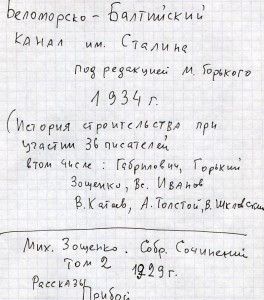 Беломорско - Балтийский
канал им. Сталина
под редакцией М. Горького
1934 г.
(История строительства при
участии 36 писателей
в том числе: Габрилович, Горький
Зощенко, Вс. Иванов
В. Катаев, А. Толстой, В. Шкловский
Мих. Зощенко. Собр. Сочинений
том 2 1929 г.
Рассказы
Прибой